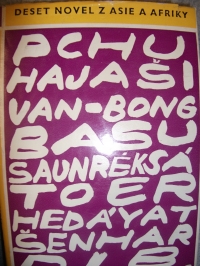 DESET NOVEL Z ASIE A AFRIKY
PCHU
HAJAŠI
VAN-BONG
BASU
SAUNRÉKSÁ
TOER
HEDÁYAT
ŠENHAR